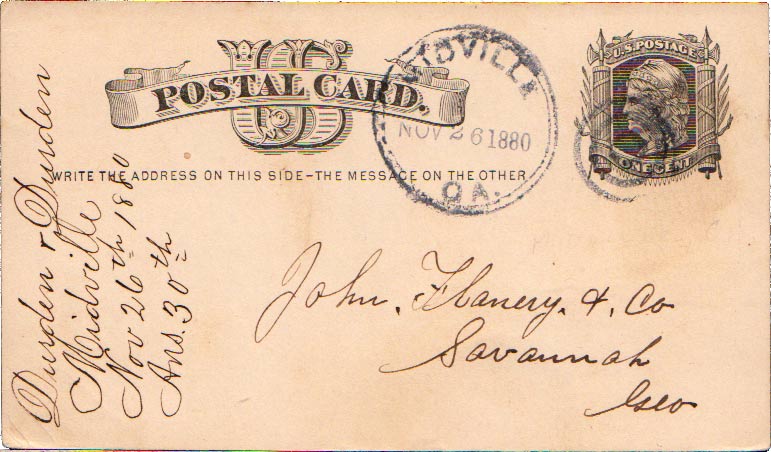 US
POSTAL CARD.
WRITE THE ADDRESS ON THIS SIDE–THE MESSAGE ON THE OTHER
MIDVILLE
NOV 26 1880
GA.
U.S. POSTAGE
ONE CENT
John. Flanery. & Co
Savannah
Geo
Durden & Durden
Midville
Nov 26th 1880
Ans. 30th